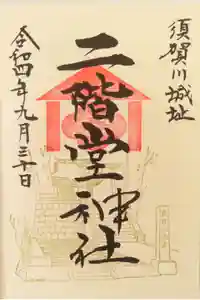 須賀川城址
二階堂神社
令和四年九月三十日